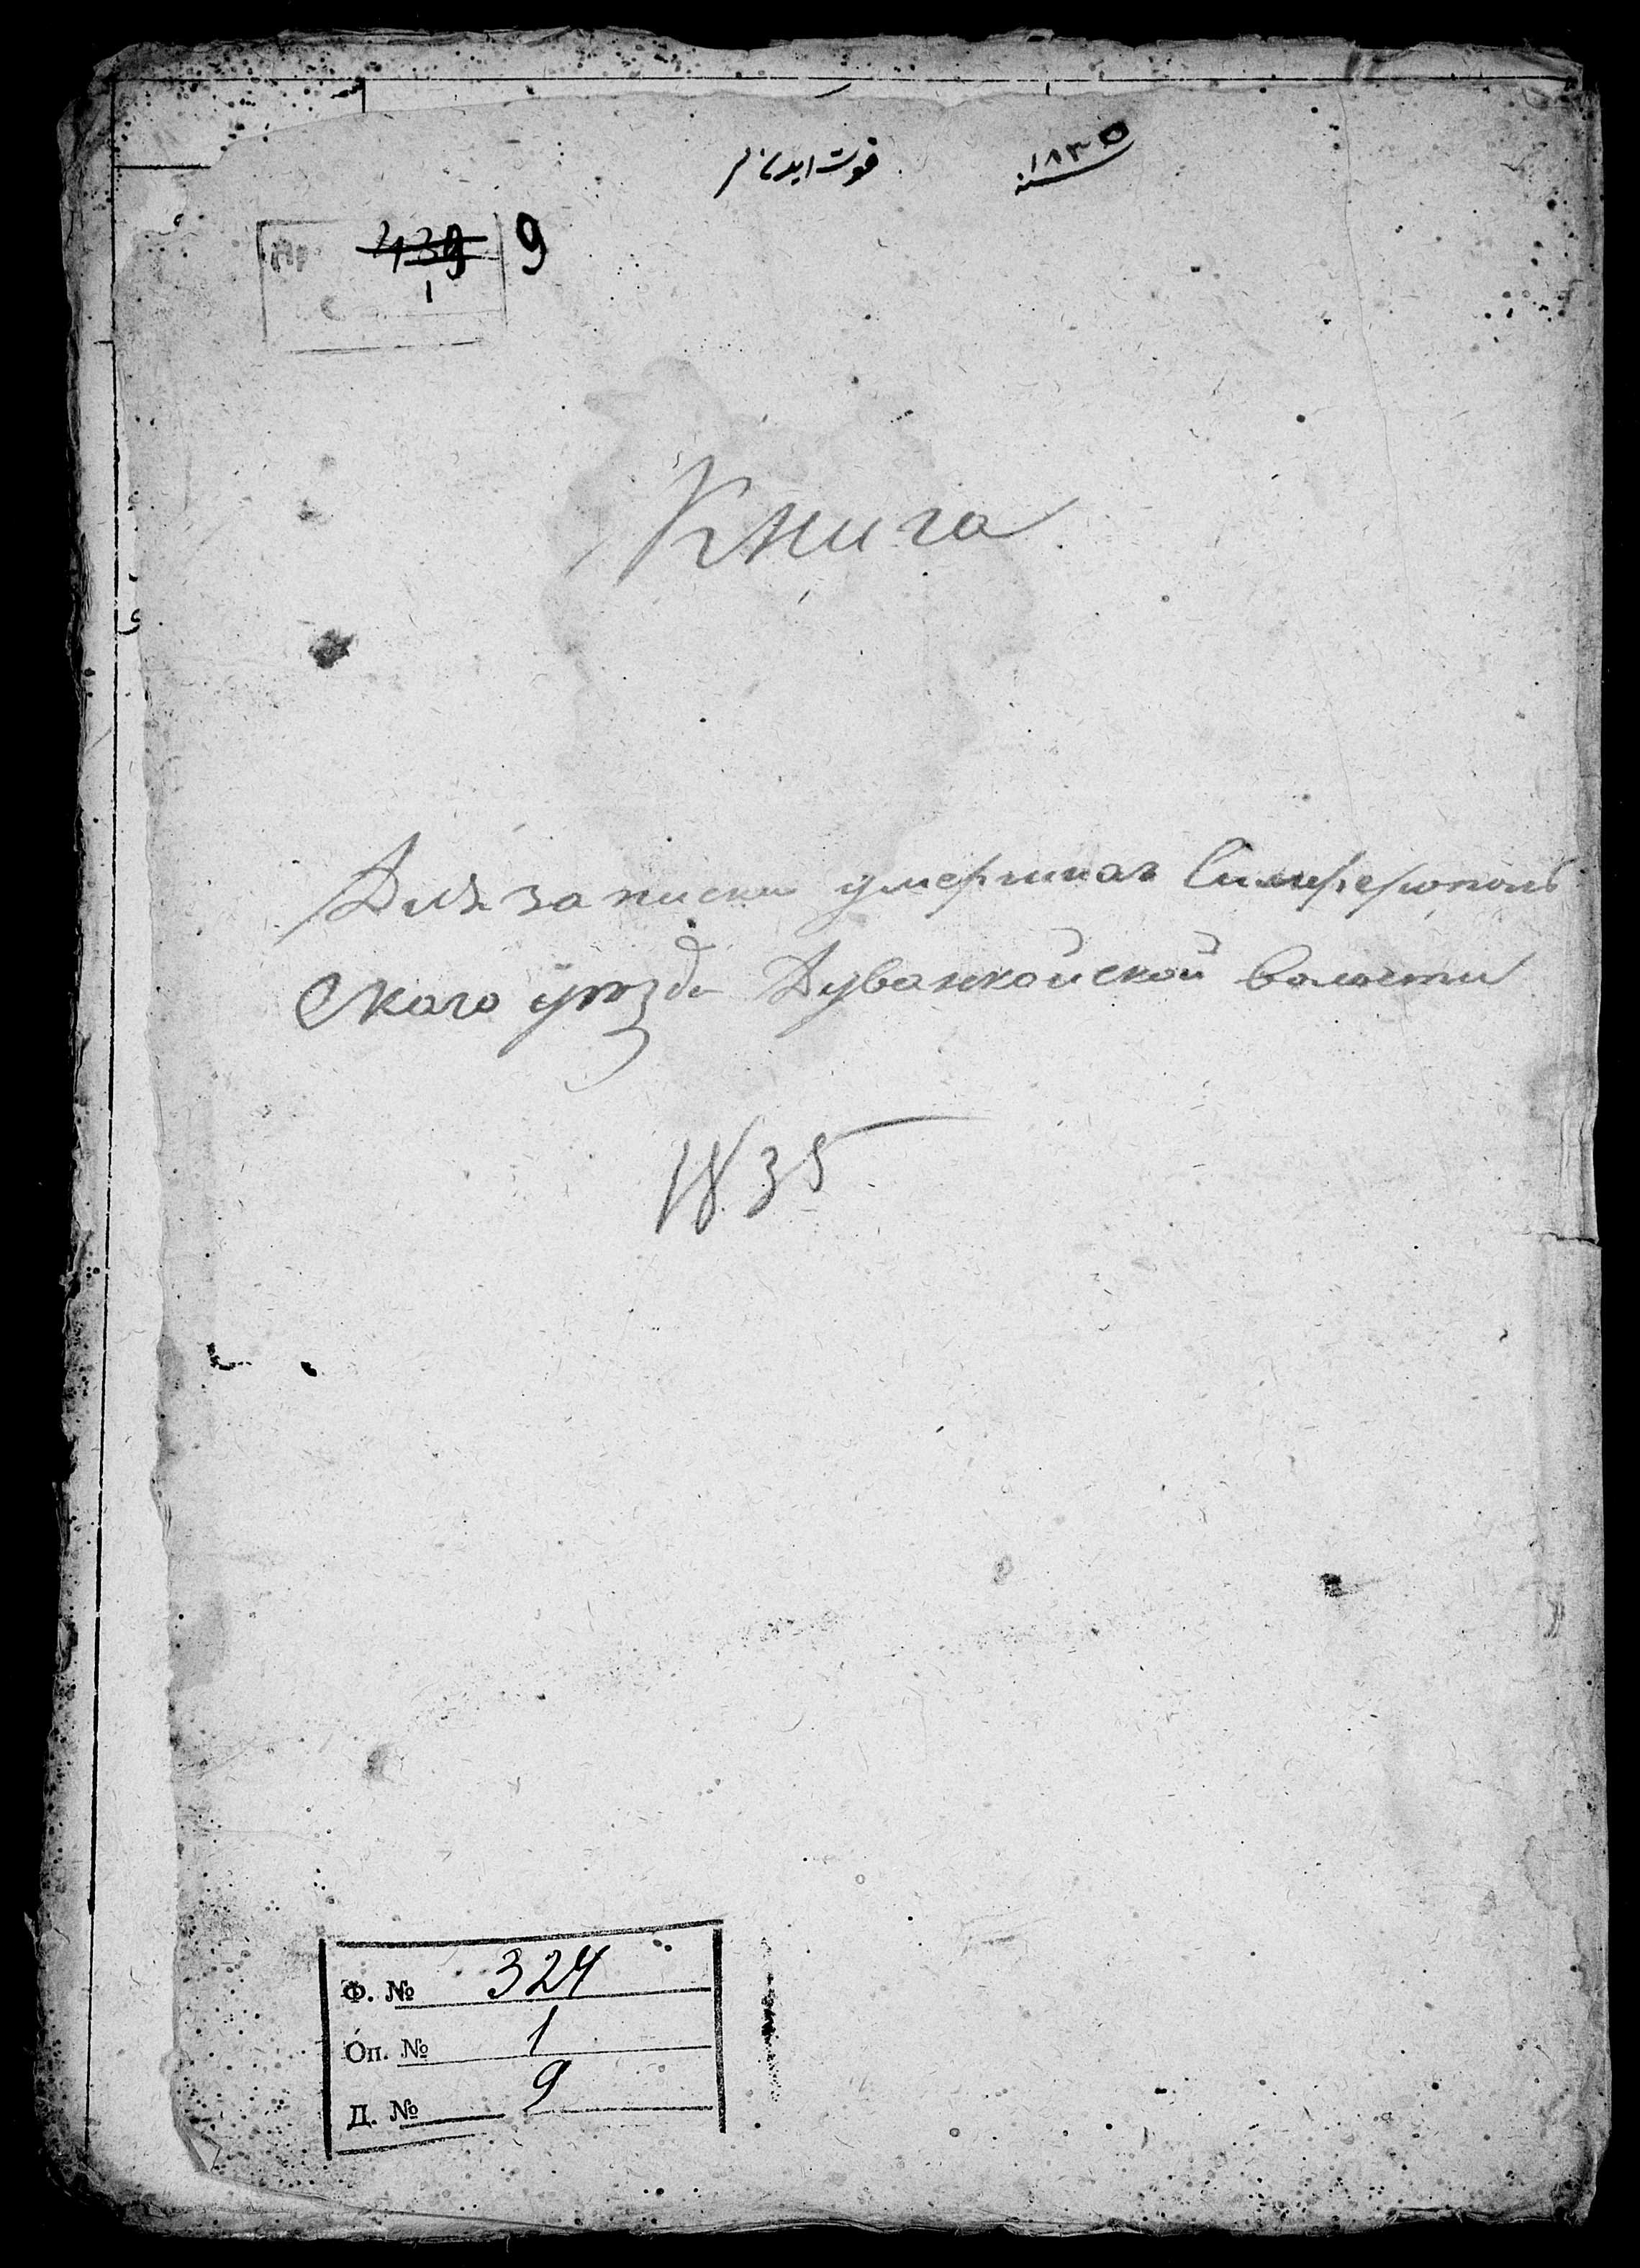 سنه ١٨٣٥
فوت ايدنلر
439 9
1
Книга
Для записки умершихъ Симферополь
скаго уѣзда Дуванкойской волости
1835
Ф. № 324
Оп. № 1
Д. № 9